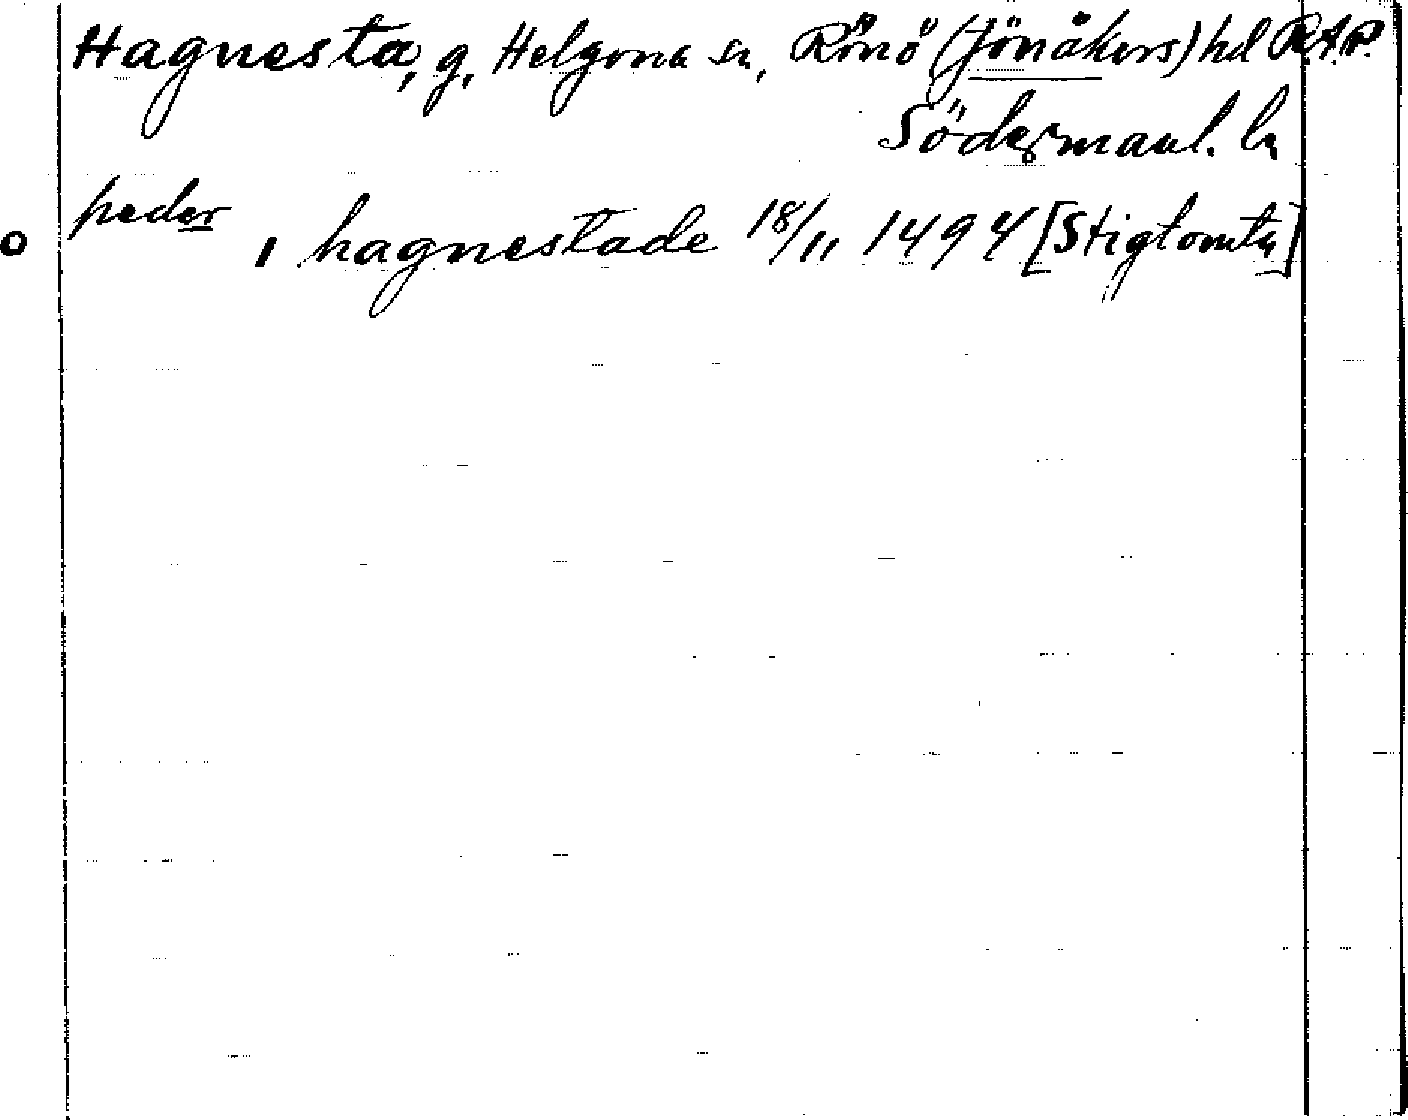 Hagnesta, g, Helgona sn, Rönö (Jönåkers) hd RAP.
Södermanl. ln
peder
ı hagnestade 18/11 1494 [Stigtomta]